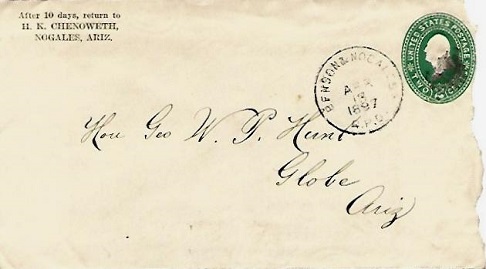 After 10 days, return to
H. K. CHENOWETH,
NOGALES, ARIZ.
UNITED STATES POSTAGE
TWO
BENSON & NOGALES
1897
R.P.O.
Hon Geo W. P. Hunt
Globe
Ariz